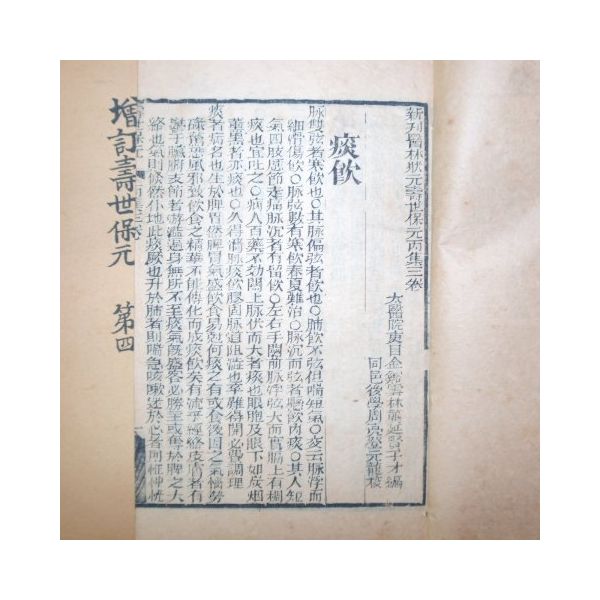 新刊醫林狀元壽世保元丙集三卷
太醫院吏目金谿雲林龔廷賢子才編
同邑後學周亮登元龍校
痰飲
脉雙弦者寒飲也○其脉偏弦者飲也○肺飲不弦但喘短氣○支云脉浮而
細滑傷飲○脉弦數有寒飲春夏難治○脉沉而弦者懸飲內痰○其人短
氣四肢歷節走痛脉沉者有留飲○左右手關前脉浮弦大而實膈上有稠
痰也宜吐之○病人百藥不効關上脉伏而大者痰也眼胞及眼下如灰烟
薰黑者痰也○久得澁脉痰飲膠固脉道阻澁也卒難得開必費調理
痰者病名也生於脾胃然脾胃氣盛飲食易尅何痰之有或食後因之氣惱勞
碌驚恐風邪致飲食之精華不能傳化而成痰飲矣有流於經絡皮膚者有
鬱於臟腑支節者遊溢遍身無所不至痰氣旣盛客必勝主或奪於脾之大
絡也氣則倐然仆地此痰厥也升於肺者則喘急咳嗽迷於心者則怔忡恍
增訂壽世保元 第四